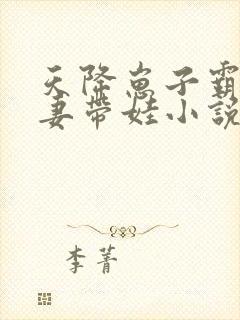 天降崽子霸
妻带娃小説
李菁